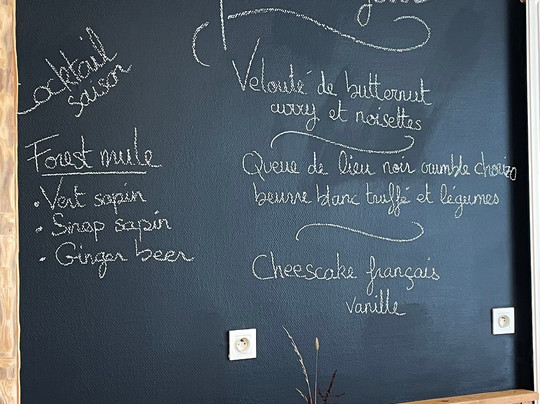 Cocktail
saison
Forest mule
• Vert sapin
• Sirop sapin
• Ginger beer
Velouté de butternut
curry et noisettes
Queue de lieu noir crumble chorizo
beurre blanc truffé et légumes
Cheescake français
vanille